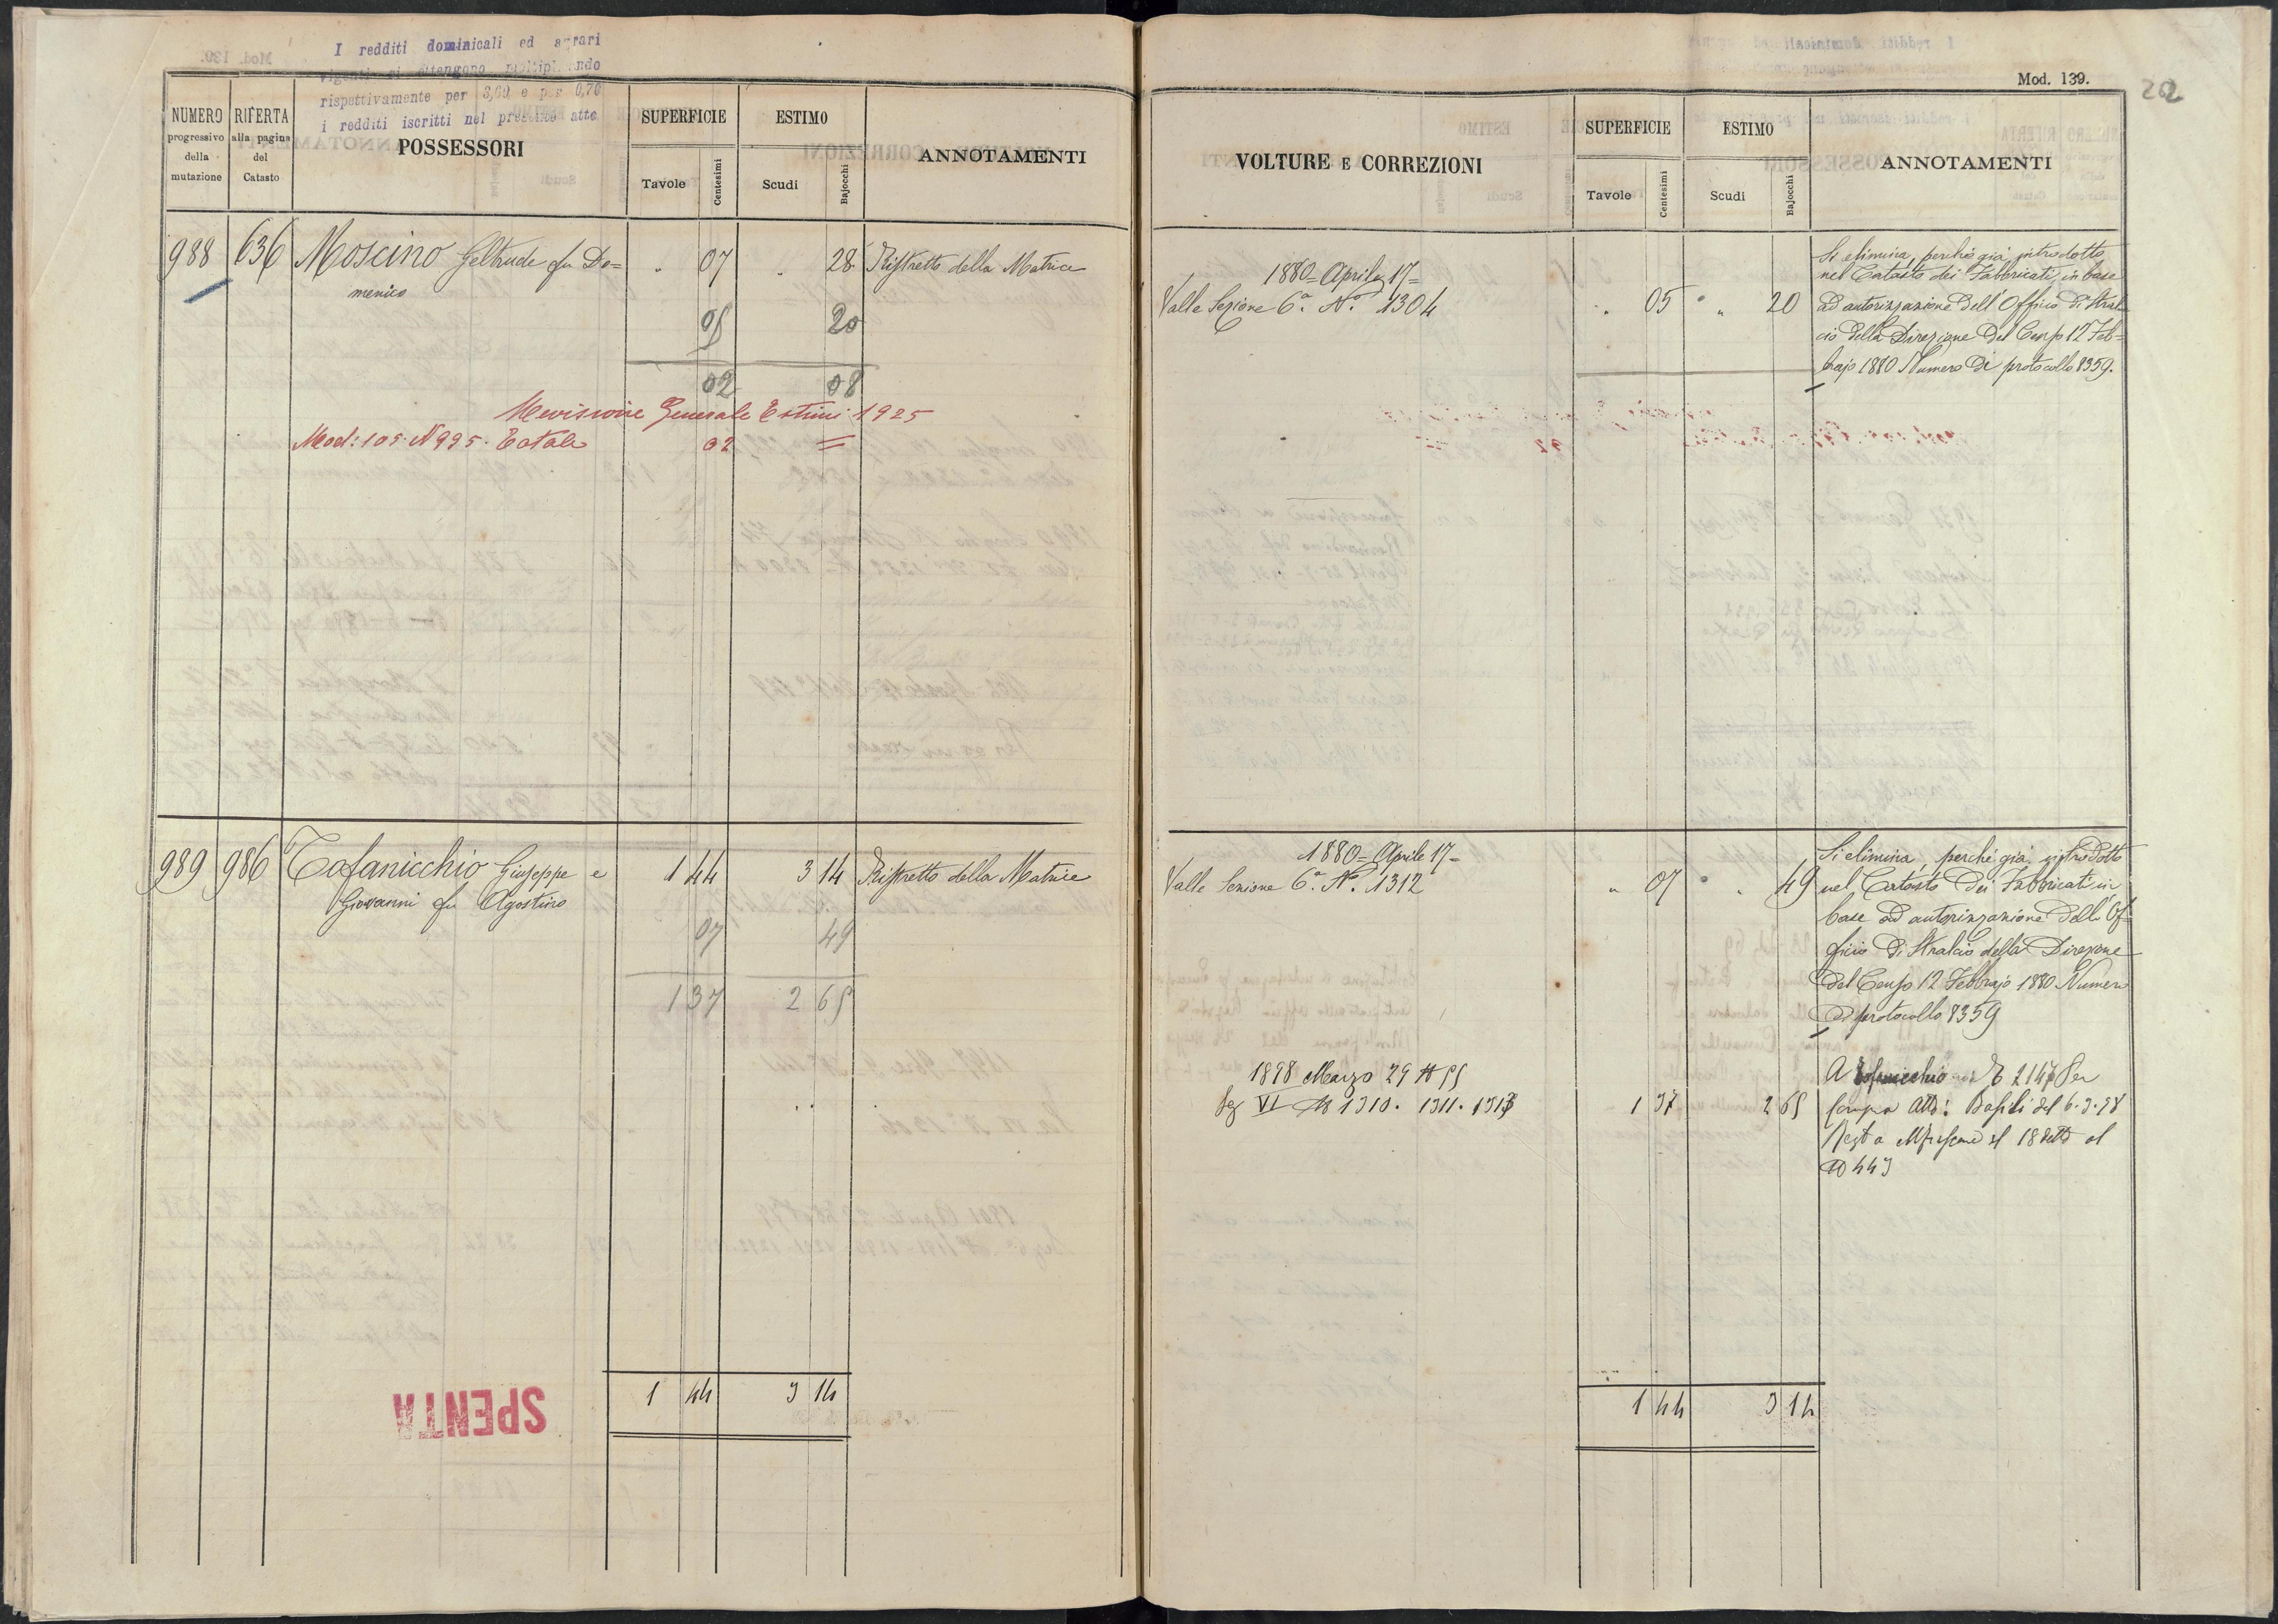 I redditi dominicali ed agrari
vigenti si ottengono moltiplicando
rispettivamente per 3,60 e per 0,70
i redditi iscritti nel presente atto
NUMERO progressivo della mutazione
RIFERTA alla pagina del Catasto
POSSESSORI
SUPERFICIE
Tavole
Centesimi
ESTIMO
Scudi
Bajocchi
ANNOTAMENTI
988 636 Moscino Geltrude fu Do= " 07 " 28 Ristretto della Matrice
menico
05 20
02 08
Revisione Generale Estimi 1925
Mod: 105 N 995. Totale 02 =
989 986 Tofanicchio Giuseppe e 1 44 3 14 Ristretto della Matrice
Giovanni fu Agostino
07 49
1 37 2 65
SPENTA
1 44 3 14
Mod. 139.
202
VOLTURE E CORREZIONI
SUPERFICIE
Tavole
Centesimi
ESTIMO
Scudi
Bajocchi
ANNOTAMENTI
1880= Aprile 17=
Valle Sezione 6ª. Nº. 1304 " 05 " 20
Si elimina, perchè già introdotto
nel Catasto dei Fabbricati in base
ad autorizzazione dell'Officio di Stral=
cio della Direzione del Censo 12 Feb=
brajo 1880 Numero di protocollo 8359.
1880= Aprile 17=
Valle Sezione 6ª. Nº. 1312 " 07 " 49
Si elimina, perchè già introdotto
nel Catasto dei Fabbricati in
base ad autorizzazione dell'Of=
ficio di Stralcio della Direzione
del Censo 12 Febbrajo 1880 Numero
di protocollo 8359
1898 Marzo 29 N 55
Sez VI N 1310. 1311. 1313 1 37 2 65
A Tofanicchio 2147 Per
compra Atto: Basili del 6.3.98
Regto a Mfrosone il 18 detto al
N 443
1 44 3 14